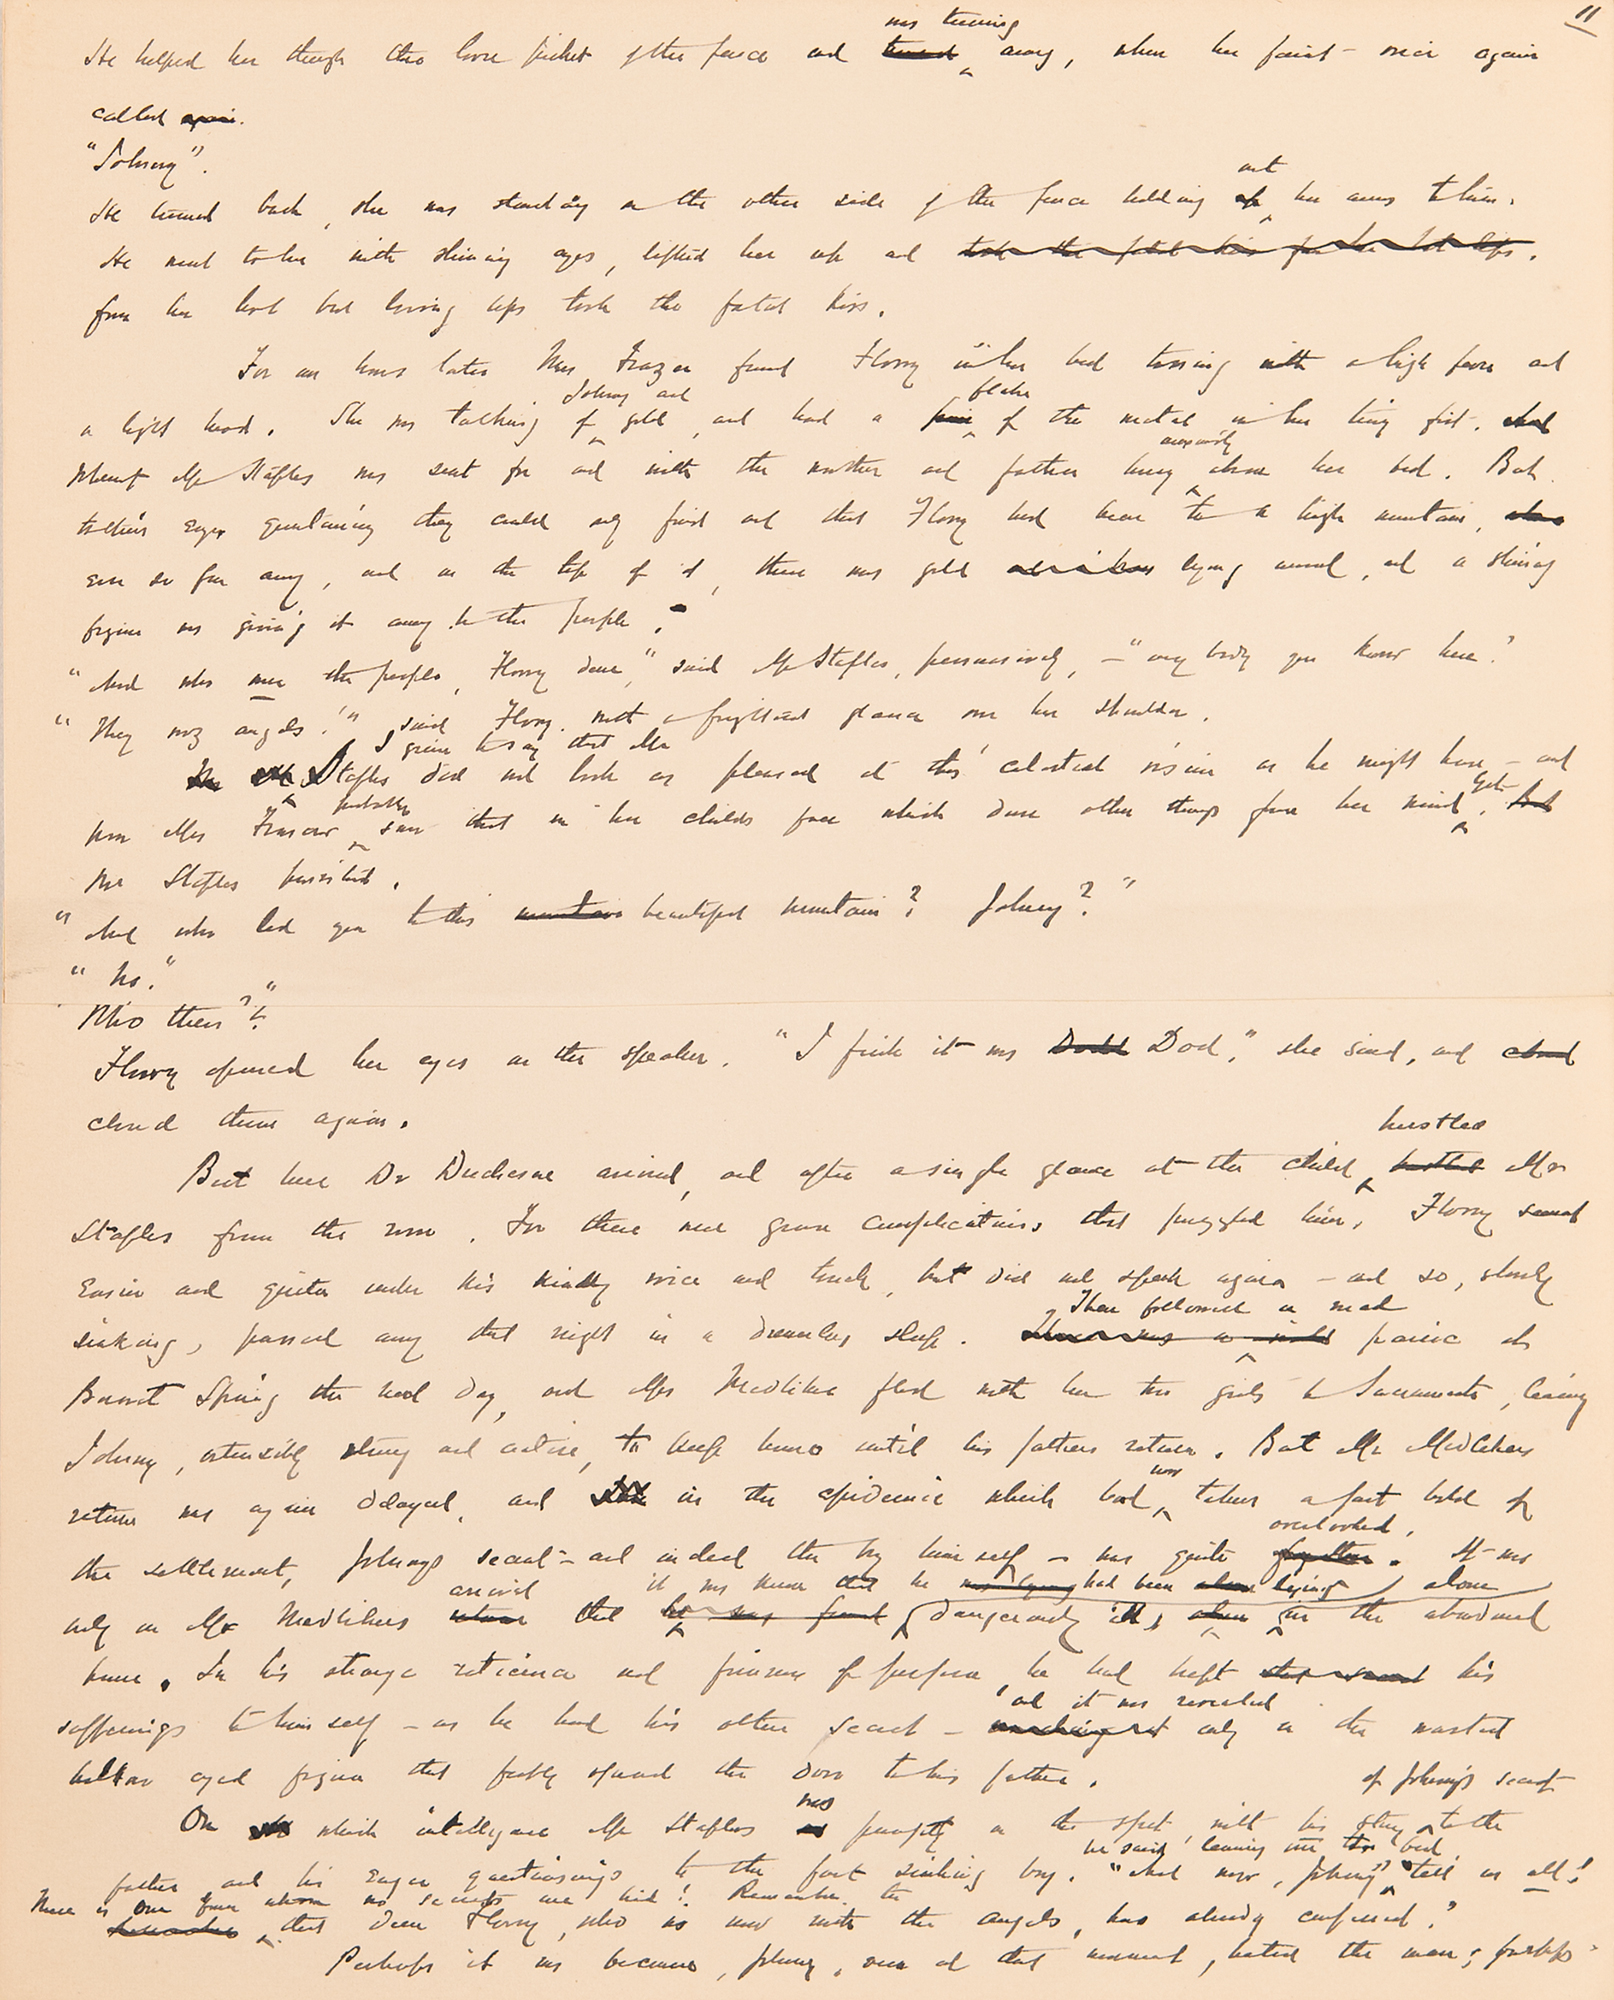 11
He helped her through the loose picket of the fence and <del>turned</del> was turning away, when her faint - voice again
called <del>again</del>.
"Johnny".
He turned back, she was standing on the other side of the fence holding <del>up</del> out her arms to him.
He went to her with shining eyes, lifted her up and <del>took the fatal kiss from her hot lips</del>.
from her hot but loving lips took the fatal kiss.
For an hour later Mrs Frazer found Florry in her bed tossing with a high fever and
a light head. She was talking of Johnny and gold, and had a <del>piece</del> flake of the metal in her tiny fist. <del>And</del>
Whereat Mr Staples was sent for and with the mother and father hung anxiously above her bed. But
to their eager questioning they could only find out that Florry had been to a high mountain,
ever so far away, and on the top of it, there was gold lying around, and a shining
figure was giving it away to the people.
"And who were the people, Florry dear," said Mr Staples, persuasively, - "any body you know here?"
"They woz angels!" said Florry, with a frightened glance over her shoulder.
I grieve to say that Mr Staples did not look as pleased at this celestial vision as he might have - and
poor Mrs Frazer probably saw that in her childs face which drove other things from her mind. Yet <del>But</del>
Mr Staples persisted.
"And who led you to this <del>mountain</del> beautiful mountain? Johnny?"
"No."
Who then?"
Florry opened her eyes on the speaker. "I fink it was <del>Dodd</del> Dod," she said, and <del>closed</del>
closed them again.
But here Dr Duchesne arrived, and after a single glance at the child, <del>hustled</del> hustled Mr
Staples from the room. For there were grave complications that puzzled him. Florry seemed
easier and quieter under his kindly voice and touch, but did not speak again - and so, slowly
sinking, passed away that night in a dreamless sleep. <del>There was a</del> Then followed a mad panic at
Burnt Spring the next day, and Mrs Medliker fled with her two girls to Sacramento, leaving
Johnny, ostensibly strong and active, to keep house until his fathers return. But Mr Medlikers
return was again delayed, and in the epidemic which had now taken a fast hold of
the settlement, Johnnys secret - and indeed the boy himself - was quite <del>forgotten</del> overlooked. It was
only on Mr Medlikers <del>return</del> arrival that <del>he was found</del> it was known that he <del>was lying</del> had been <del>alone</del> lying dangerously ill, <del>alone</del> alone in the abandoned
house. In his strange reticence and firmness of purpose he had kept <del>that secret</del> his
sufferings to himself - as he had his other secret - and it was revealed only in the wasted
hollow eyed figure that feebly opened the door to his father.
On which intelligence Mr Staples was promptly on the spot with his story of Johnny's secret to the
father and his eager questionings to the fast sinking boy. "And now, Johnny" he said, leaning over the bed "tell us all!
There is One from whom no secrets are hid! Remember too that dear Florry, who is now with the angels, has already confessed."
Perhaps it was because, Johnny, even at that moment, hated the man; perhaps